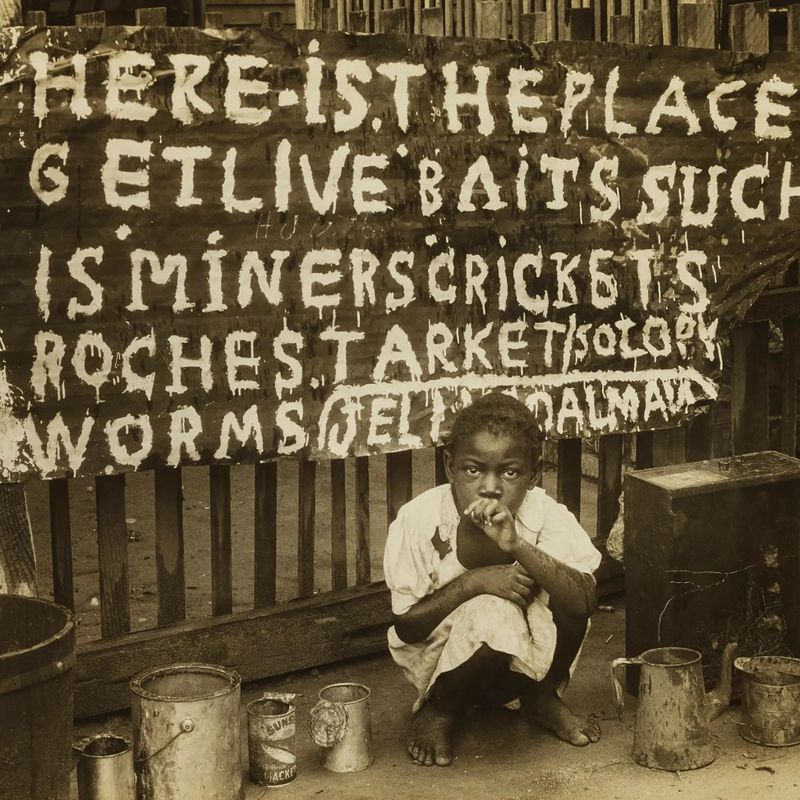 HERE.IS.THE PLACE
GET LIVE BAITS SUCH
IS MINERS CRICKETS
ROCHES.TARKET/SOLD BY
WORMS
SUNS
MACKE